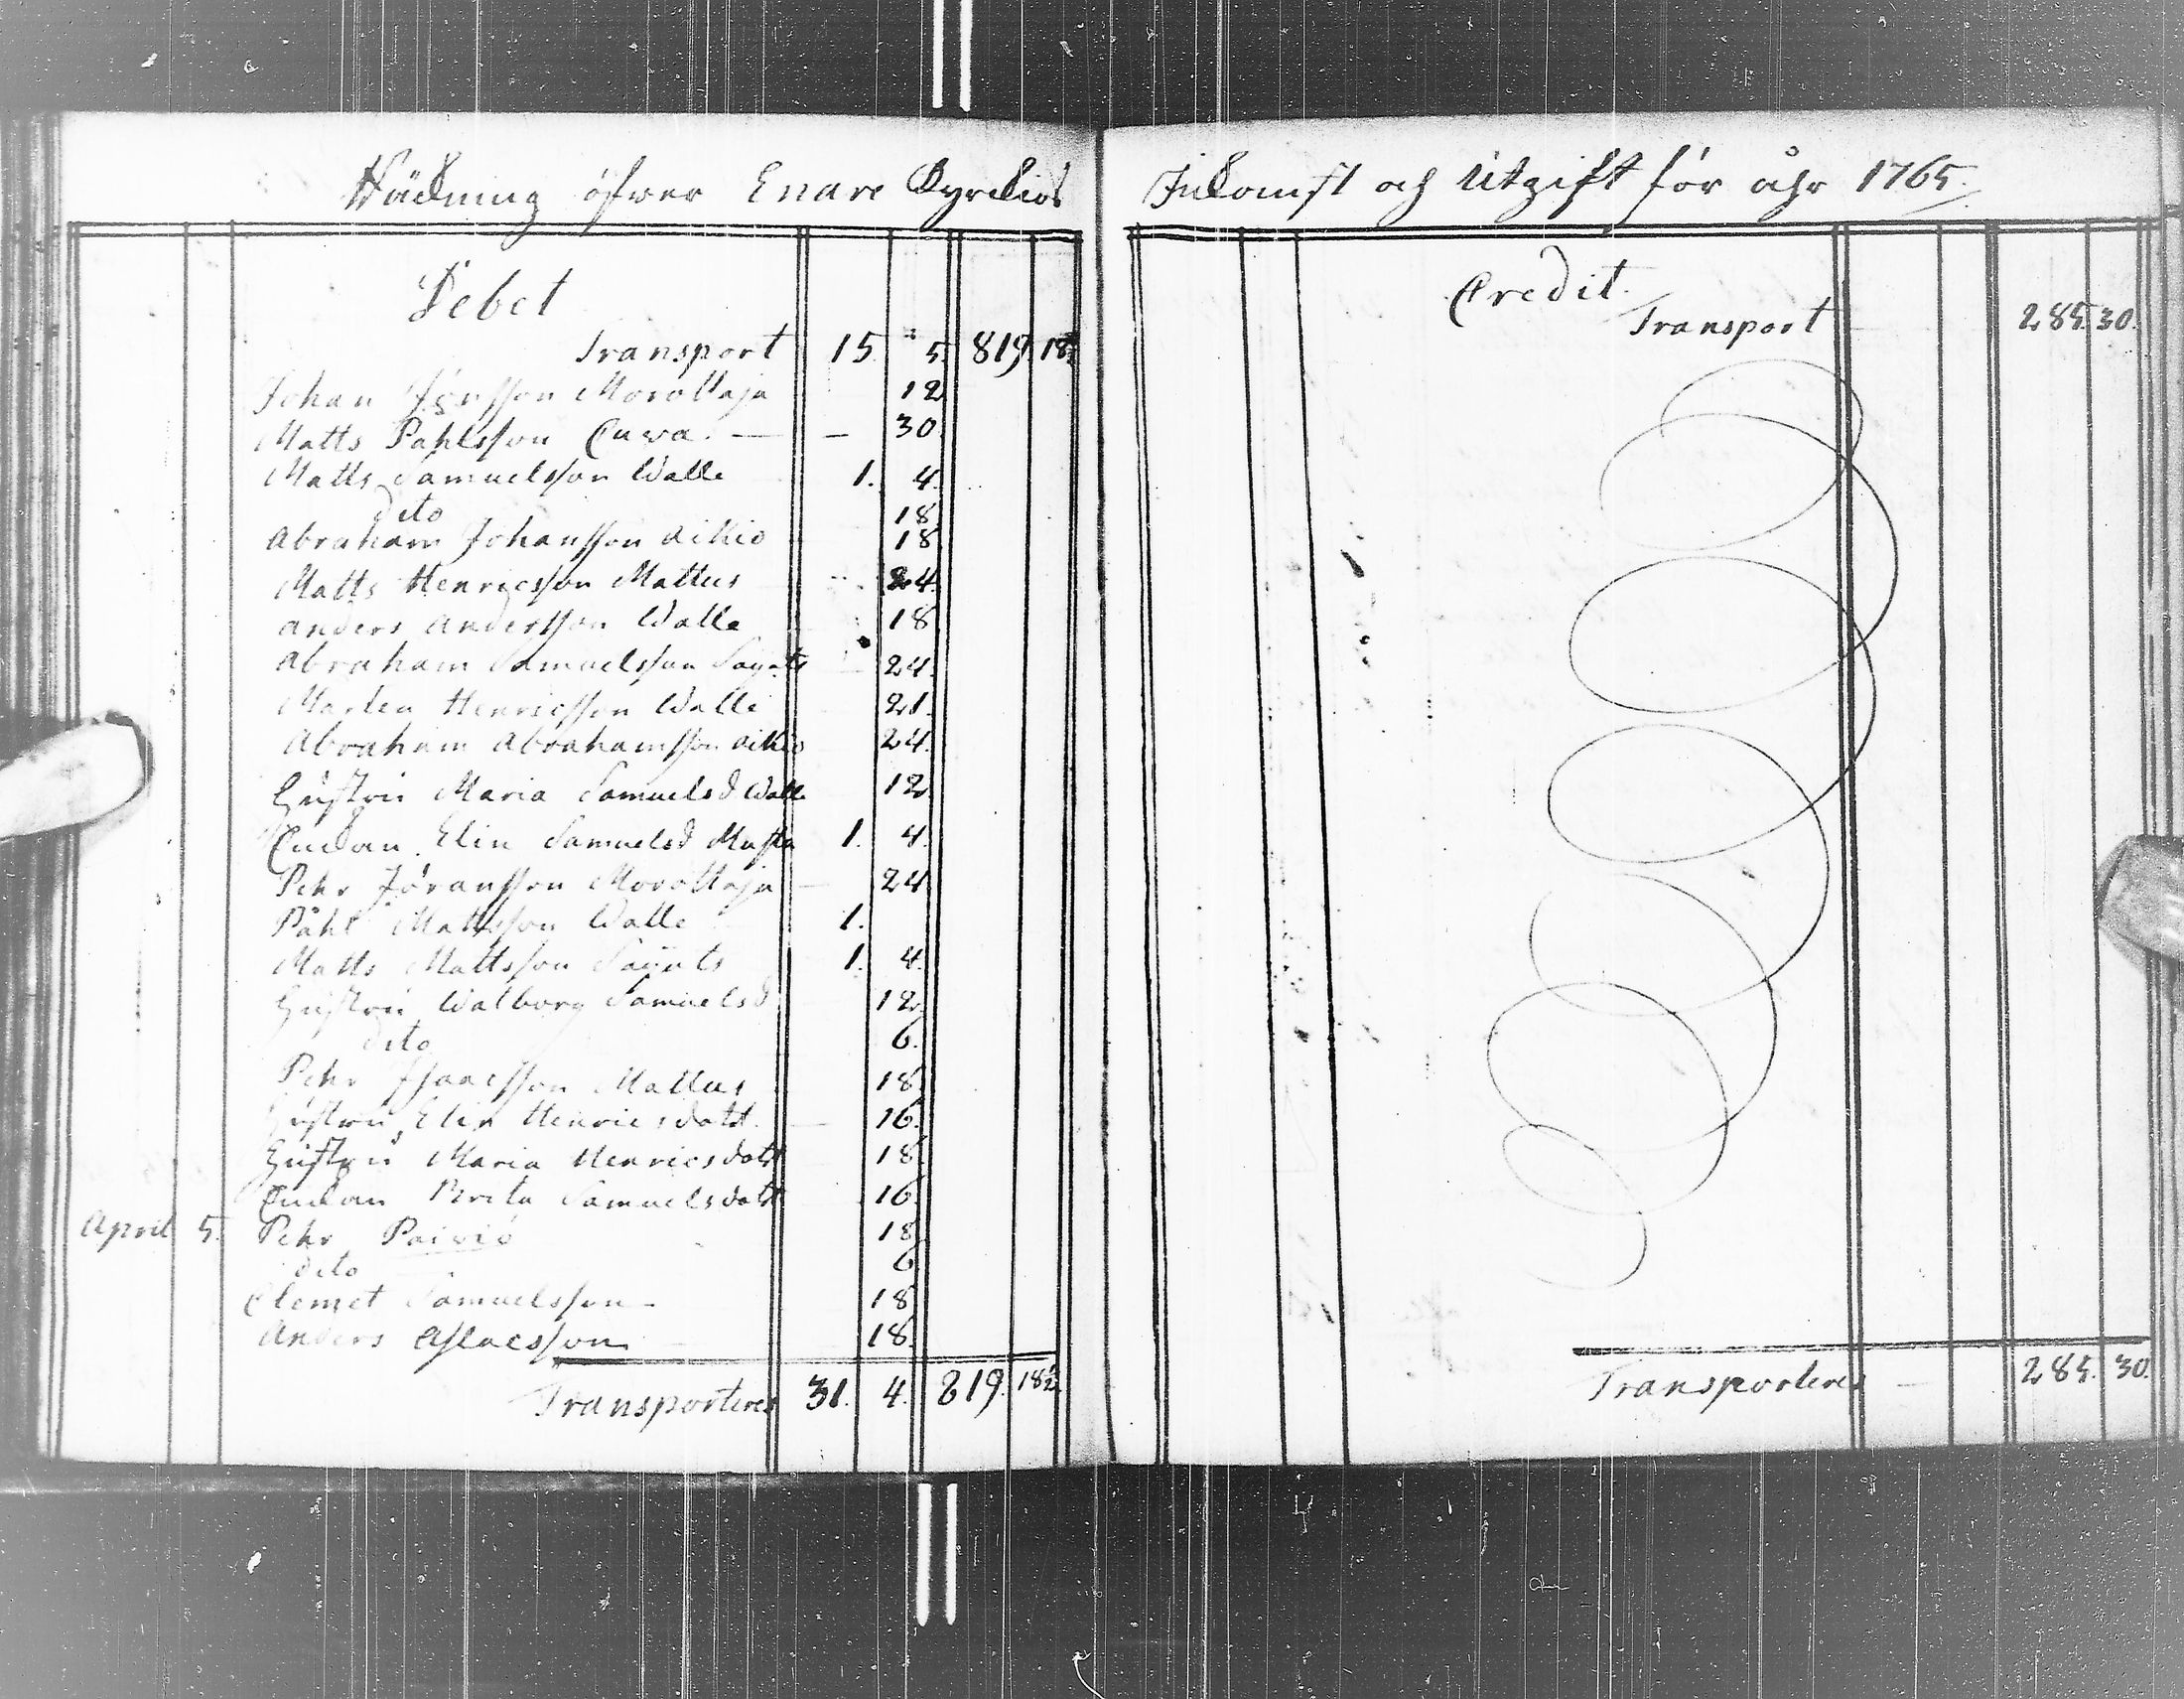 Räkning öfwer Enare Kyrckios
Debet
Transport 15. 5. 819. 18½
Johan Jörsson Morottaja 12
Matts Pahlsson Cuwa. — — 30.
Matts Samuelsson Walle 1. 4.
dito 18.
Abraham Johansson Aikio 18
Matts Henricsson Mattus 24.
Anders Andersson Walle 18
Abraham Samuelsson 24.
Morten Henricsson Walle 21.
Abraham Abrahamsson Aikio 24.
Hustru Maria Samuelsd Walle 12.
Enckan Elin Samuelsd Musta 1. 4.
Pehr Jöransson Morottaja — 24
Påhl Mattsson Walle 1.
Matts Mattsson Sajets 1. 4.
Hustru Walborg Samuelsd 12.
dito 6.
Pehr Isaacsson Mattus 18
Hustru Elin Henricsdott. — 16.
Hustru Maria Henricsdott 18
Enckan Brita Samuelsdott 16
April 5. Pehr Paivió 18
dito 6
Clemet Samuelsson 18
Anders Aslacsson 18.
Transporteres 31. 4. 819. 18½
Inkomst och Utgift för åhr 1765.
Credit.
Transport 285. 30.
Transporteres — 285. 30.